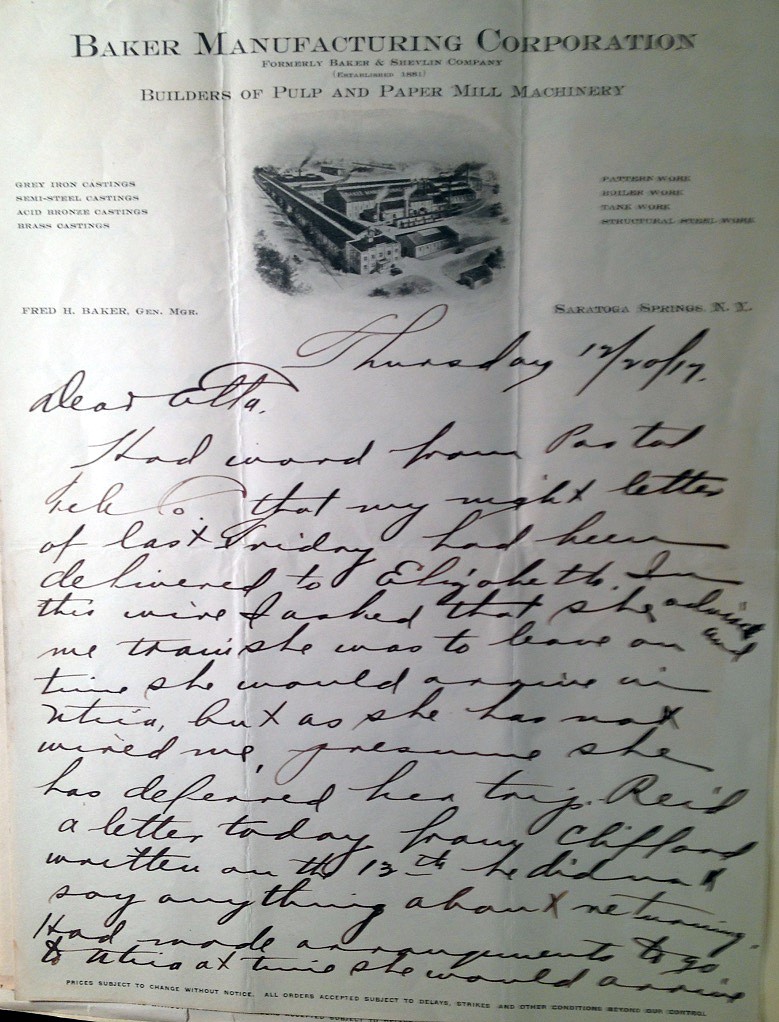 BAKER MANUFACTURING CORPORATION
FORMERLY BAKER & SHEVLIN COMPANY
(ESTABLISHED 1881)
BUILDERS OF PULP AND PAPER MILL MACHINERY
GREY IRON CASTINGS
SEMI-STEEL CASTINGS
ACID BRONZE CASTINGS
BRASS CASTINGS
PATTERN WORK
BOILER WORK
TANK WORK
STRUCTURAL STEEL WORK
FRED H. BAKER, GEN. MGR.
SARATOGA SPRINGS, N. Y.
Thursday 12/20/17.
Dear Etta.
Had word from Postal
Tel Co. that my night letter
of last Friday had been
delivered to Elizabeth. In
this wire I asked that she advise
me train she was to leave on and
time she would arrive in
Utica, but as she has not
wired me, presume she
has deferred her trip. Rec'd
a letter today from Clifford
written on the 13th he did not
say anything about returning.
Had made arrangements to go
to Utica at time she would arrive
PRICES SUBJECT TO CHANGE WITHOUT NOTICE. ALL ORDERS ACCEPTED SUBJECT TO DELAYS, STRIKES AND OTHER CONDITIONS BEYOND OUR CONTROL
ACCEPTED SUBJECT TO